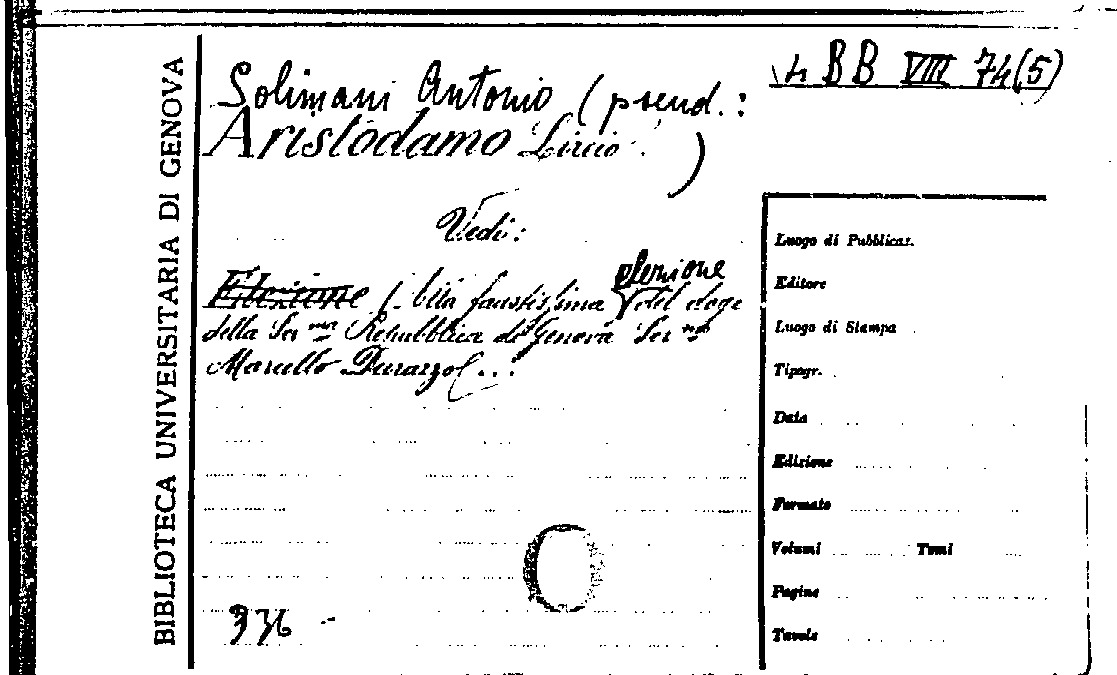 BIBLIOTECA UNIVERSITARIA DI GENOVA
4 BB VIII 74(5)
Solimani Antonio (pseud.:
Aristodamo Licio.)
Vedi:
Elezione (bita faustissima elezione del doge
della Ser.ma Repubblica di Genova Ser.mo
Marcello Durazzo(...
336
Luogo di Pubblicaz.
Editore
Luogo di Stampa
Tipogr.
Data
Edizione
Formato
Volumi Tomi
Pagine
Tavole